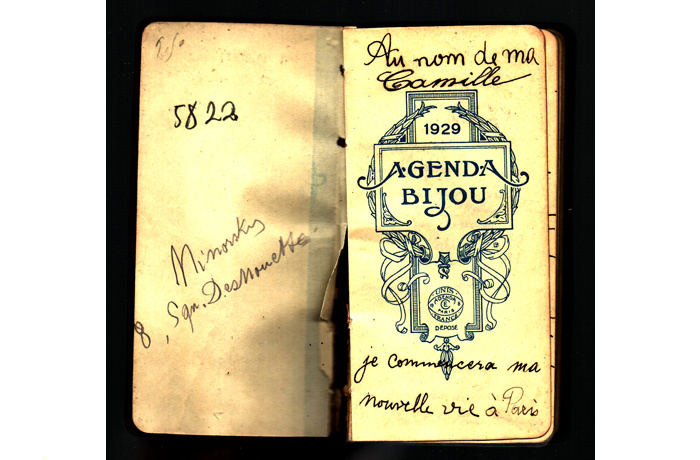 5822
Minorsky
8, Sqr. Desnouettes
Au nom de ma
Camille
1929
AGENDA
BIJOU
UNIS
FRANCE
DÉPOSÉ
je commencera ma
nouvelle vie à Paris